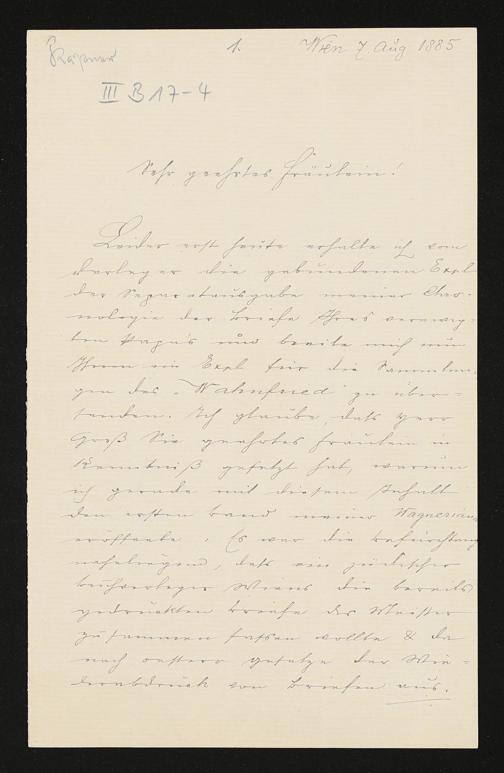 Kastner
1.
Wien 7. Aug 1885
III B 17-4
Sehr geehrtes Fräulein!
Leider erst heute erhalte ich vom
Verleger die gebundenen Expl
der Separatausgabe meiner Chro-
nologie der Briefe Ihres verewig-
ten Papa's und beeile mich nun
Ihnen ein Expl für die Sammlun-
gen des „Wahnfried" zu über-
senden. Ich glaube, dass Herr
Groß Sie geehrtes Fräulein in
Kenntniß gesetzt hat, warum
ich gerade mit diesem Inhalt
den ersten Band meiner Wagneriana
eröffnete. Es war die Befürchtung
naheliegend, dass ein jüdischer
Buchverleger Wiens die bereits
gedruckten Briefe des Meister
zusammen fassen wollte & da
nach oesterr Gesetze der Wie-
derabdruck von Briefen aus.